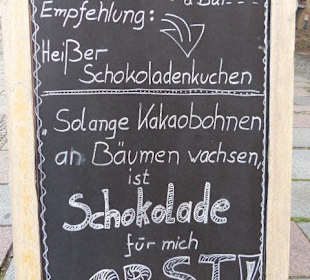 Empfehlung:
Heißer
Schokoladenkuchen
„Solange Kakaobohnen
an Bäumen wachsen,
ist
Schokolade
für mich
OBST!